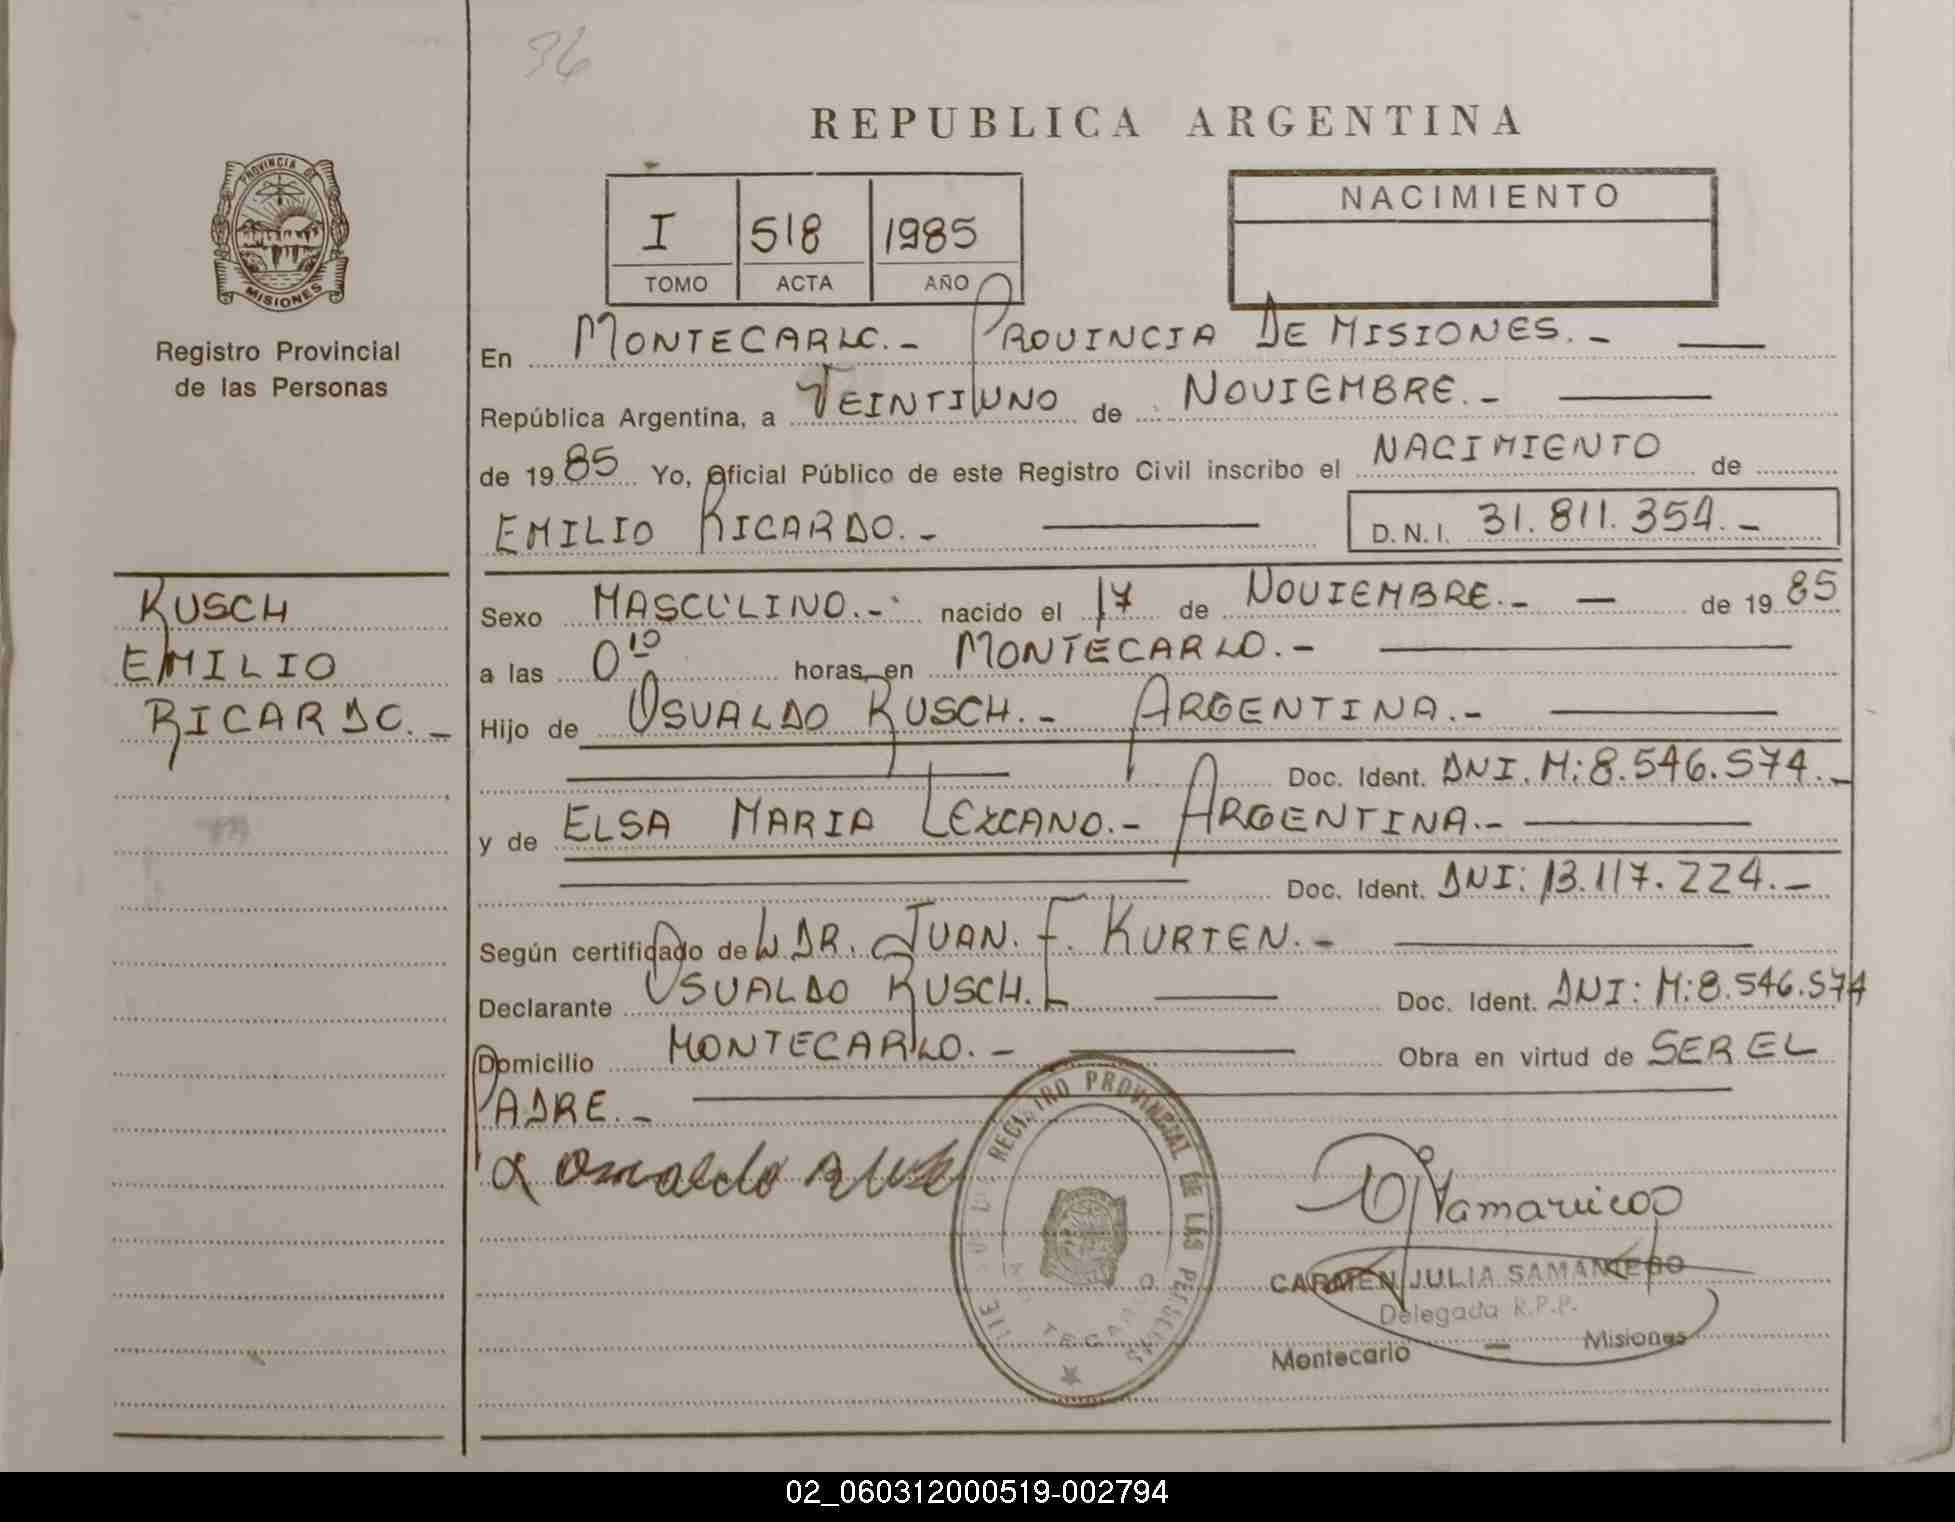 36
REPUBLICA ARGENTINA
PROVINCIA DE
MISIONES
Registro Provincial
de las Personas
I 518 1985
TOMO ACTA AÑO
NACIMIENTO
En MONTECARLO.- PROVINCIA DE MISIONES.-
República Argentina, a VEINTIUNO de NOVIEMBRE.-
de 1985 Yo, Oficial Público de este Registro Civil inscribo el NACIMIENTO de
EMILIO RICARDO.- D.N.I. 31.811.354.-
RUSCH
EMILIO
RICARDO.-
Sexo MASCULINO.- nacido el 17 de NOVIEMBRE.- de 1985
a las 0 10 horas, en MONTECARLO.-
Hijo de OSVALDO RUSCH.- ARGENTINA.-
Doc. Ident. DNI. M: 8.546.574.-
y de ELSA MARIA LEZCANO.- ARGENTINA.-
Doc. Ident. DNI: 13.117.224.-
Según certificado de L DR. JUAN. F. KURTEN.-
Declarante OSVALDO RUSCH. Doc. Ident. DNI: M: 8.546.574
Domicilio MONTECARLO.- Obra en virtud de SER EL
PADRE.-
Osvaldo Rusch
REGISTRO PROVINCIAL DE LAS PERSONAS
CARMEN JULIA SAMANIEGO
Delegada R.P.P.
Montecarlo - Misiones
02_060312000519-002794